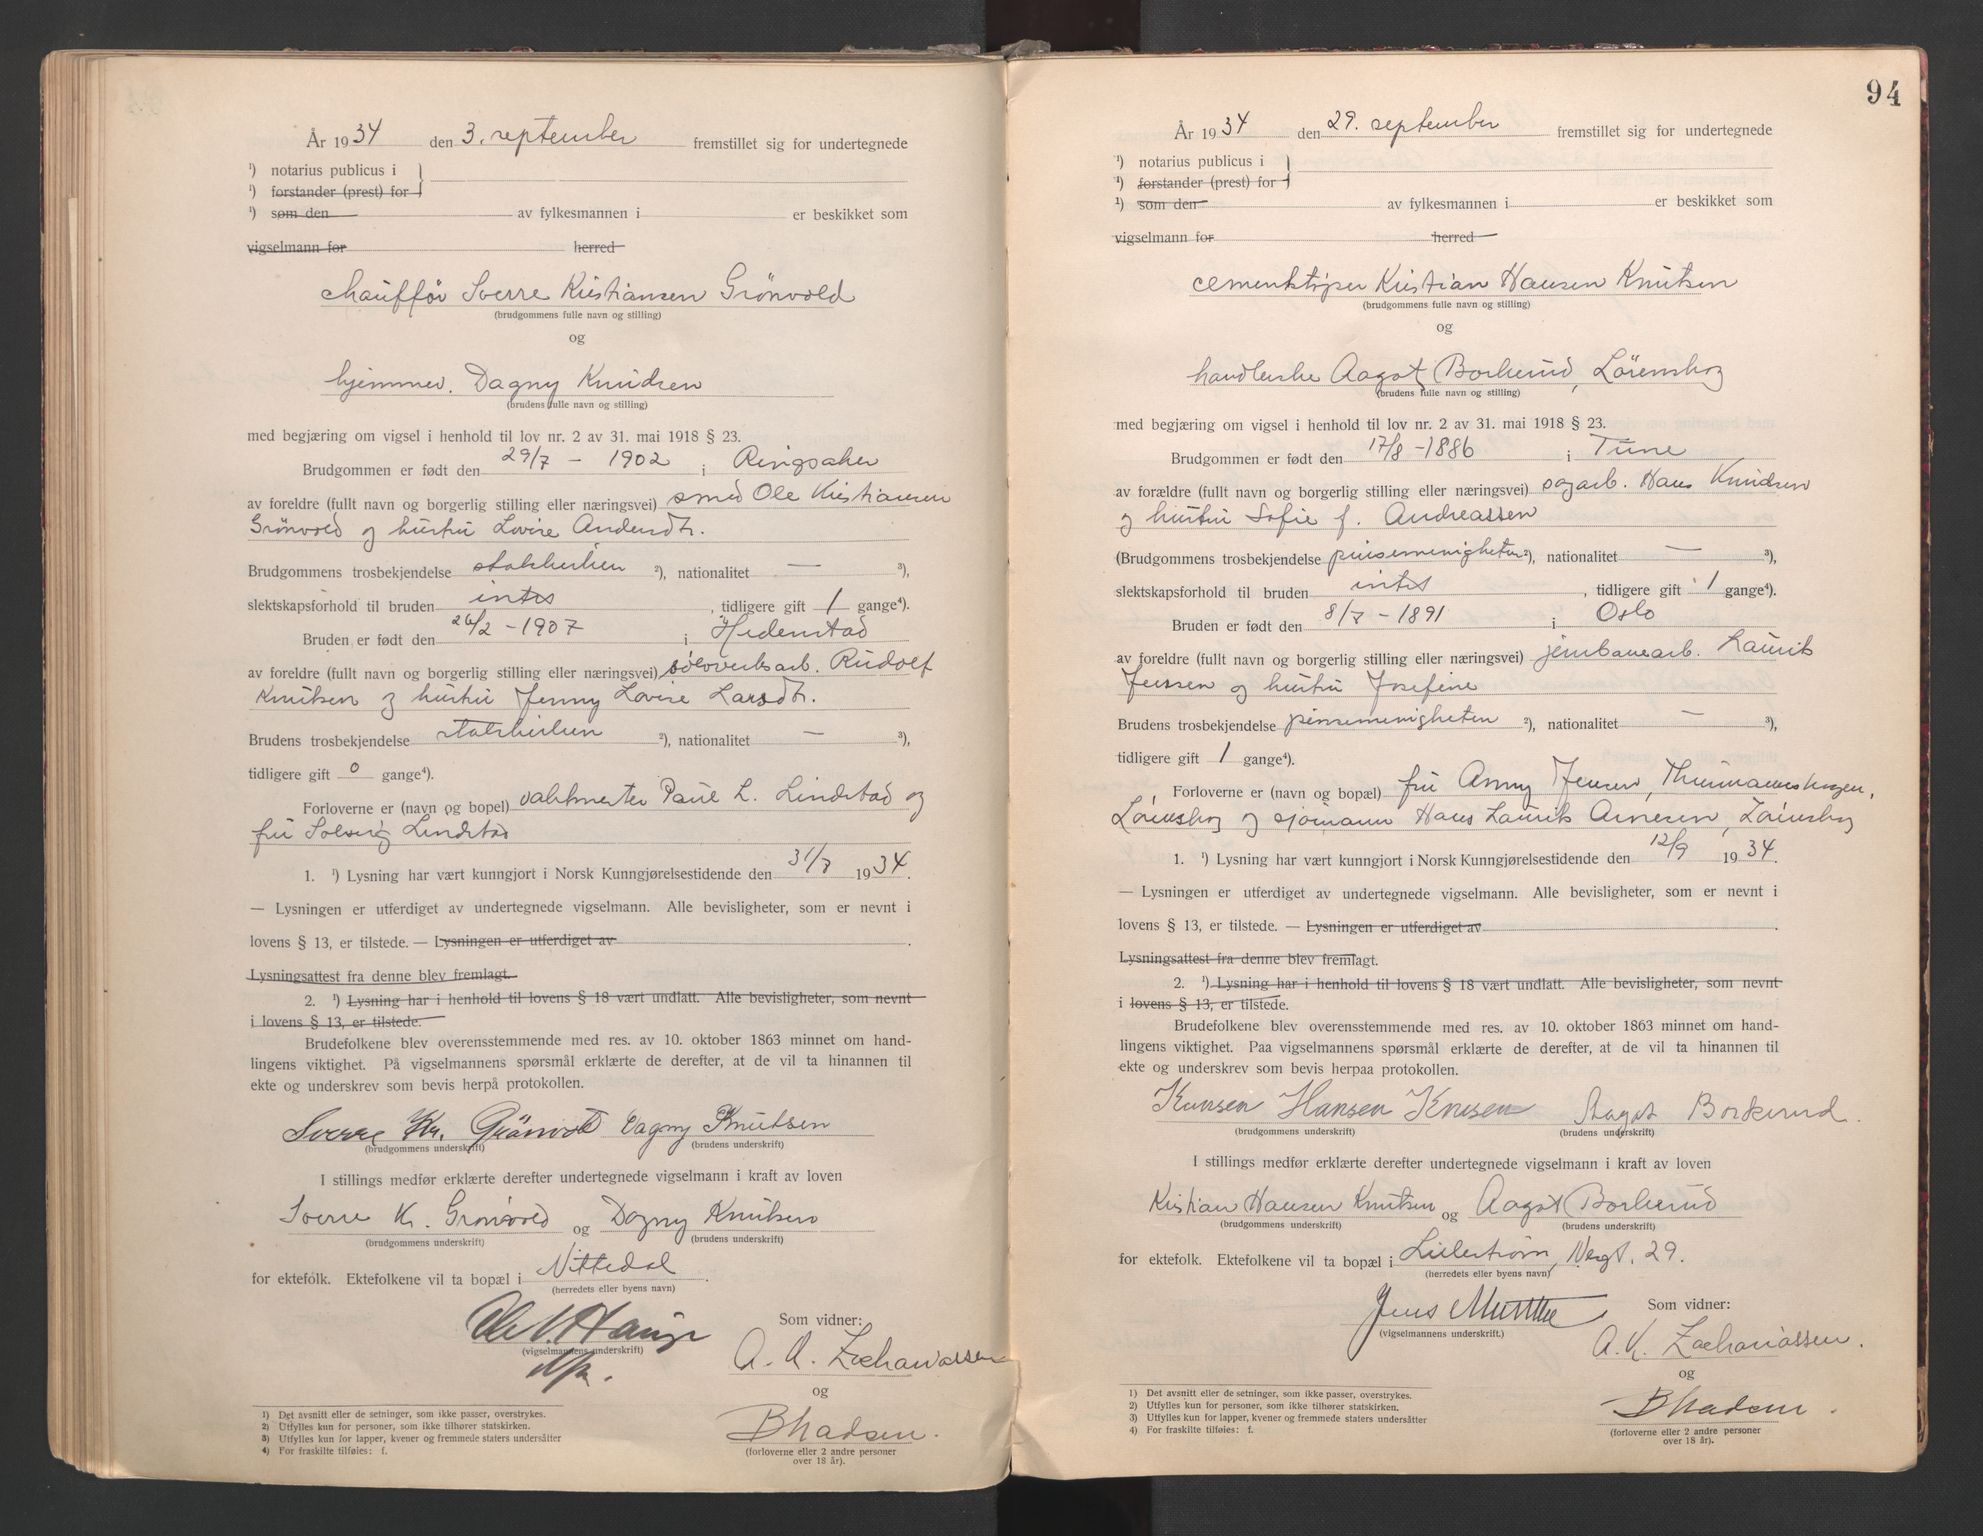 År 1934 den 3. september fremstillet sig for undertegnede
¹) notarius publicus i
¹) forstander (prest) for
¹) som den av fylkesmannen i er beskikket som
vigselmann for herred
chauffør Sverre Kristiansen Grönvold
(brudgommens fulle navn og stilling)
og
hjemmev. Dagny Knudsen
(brudens fulle navn og stilling)
med begjæring om vigsel i henhold til lov nr. 2 av 31. mai 1918 § 23.
Brudgommen er født den 29/7 - 1902 i Ringsaker
av foreldre (fullt navn og borgerlig stilling eller næringsvei) smed Ole Kristiansen
Grönvold og hustru Lovise Andersdtr.
Brudgommens trosbekjendelse statskirken ²), nationalitet — ³),
slektskapsforhold til bruden intet, tidligere gift 1 gange⁴).
Bruden er født den 26/2 - 1907 i Hedenstad
av foreldre (fullt navn og borgerlig stilling eller næringsvei) sølvverksarb. Rudolf
Knutsen og hustru Jenny Lovise Larsdtr.
Brudens trosbekjendelse statskirken ²), nationalitet — ³),
tidligere gift 0 gange⁴).
Forloverne er (navn og bopel) vaktmester Paul L. Lindstad og
fru Solveig Lindstad
1. ¹) Lysning har vært kunngjort i Norsk Kunngjørelsestidende den 31/7 1934.
— Lysningen er utferdiget av undertegnede vigselmann. Alle bevisligheter, som er nevnt i
lovens § 13, er tilstede. — Lysningen er utferdiget av .
Lysningsattest fra denne blev fremlagt.
2. ¹) Lysning har i henhold til lovens § 18 vært undlatt. Alle bevisligheter, som nevnt
i lovens § 13, er tilstede.
Brudefolkene blev overensstemmende med res. av 10. oktober 1863 minnet om hand-
lingens viktighet. På vigselmannens spørsmål erklærte de derefter, at de vil ta hinannen til
ekte og underskrev som bevis herpå protokollen.
Sverre Kr. Grönvold Dagny Knutsen
(brudgommens underskrift) (brudens underskrift)
I stillings medfør erklærte derefter undertegnede vigselmann i kraft av loven
Sverre Kr. Grönvold og Dagny Knutsen
(brudgommens underskrift) (brudens underskrift)
for ektefolk. Ektefolkene vil ta bopæl i Nittedal.
(herredets eller byens navn)
(vigselmannens underskrift)
Som vidner:
A. K. Zachariassen
og
B Madsen.
(forloverne eller 2 andre personer
over 18 år).
1) Det avsnitt eller de setninger, som ikke passer, overstrykes.
2) Utfylles kun for personer, som ikke tilhører statskirken.
3) Utfylles kun for lapper, kvener og fremmede staters undersåtter
4) For fraskilte tilføies: f.
94
År 1934 den 29. september fremstillet sig for undertegnede
¹) notarius publicus i
¹) forstander (prest) for
¹) som den av fylkesmannen i er beskikket som
vigselmann for herred
cementstøper Kristian Hansen Knutsen
(brudgommens fulle navn og stilling)
og
handlerske Aagot Borkerud, Lørenskog
(brudens fulle navn og stilling)
med begjæring om vigsel i henhold til lov nr. 2 av 31. mai 1918 § 23.
Brudgommen er født den 17/8 - 1886 i Tune
av forældre (fullt navn og borgerlig stilling eller næringsvei) sagarb. Hans Knudsen
og hustru Sofie f. Andreassen
(Brudgommens trosbekjendelse pinsemenigheten ²), nationalitet — ³),
slektskapsforhold til bruden intet, tidligere gift 1 gange⁴).
Bruden er født den 8/7 - 1891 i Oslo
av foreldre (fullt navn og borgerlig stilling eller næringsvei) jernbanearb. Laurik
Jenssen og hustru Josefine
Brudens trosbekjendelse pinsemenigheten ²), nationalitet — ³),
tidligere gift 1 gange⁴).
Forloverne er (navn og bopæl) fru Anny Jensen, Thurmannskogen,
Lørenskog og sjömann Hans Laurik Arnesen, Lørenskog
1. ¹) Lysning har vært kunngjort i Norsk Kunngjørelsestidende den 12/9 1934.
— Lysningen er utferdiget av undertegnede vigselmann. Alle bevisligheter, som er nevnt i
lovens § 13, er tilstede. — Lysningen er utferdiget av .
Lysningsattest fra denne blev fremlagt.
2. ¹) Lysning har i henhold til lovens § 18 vært undlatt. Alle bevisligheter, som nevnt
i lovens § 13, er tilstede.
Brudefolkene blev overensstemmende med res. av 10. oktober 1863 minnet om hand-
lingens viktighet. Paa vigselmannens spørsmål erklærte de derefter, at de vil ta hinannen til
ekte og underskrev som bevis herpaa protokollen.
Hansen Aagot Borkerud.
(brudgommens underskrift) (brudens underskrift)
I stillings medfør erklærte derefter undertegnede vigselmann i kraft av loven
Kristian Hansen Knutsen og Aagot Borkerud
(brudgommens underskrift) (brudens underskrift)
for ektefolk. Ektefolkene vil ta bopæl i Lillestrøm, 29.
(herredets eller byens navn)
Jens
(vigselmannens underskrift.)
Som vidner:
A. K. Zachariassen.
og
B Madsen.
(forloverne eller 2 andre personer
over 18 år).
1) Det avsnitt eller de setninger, som ikke passer, overstrykes.
2) Utfylles kun for personer, som ikke tilhører statskirken.
3) Utfylles kun for lapper, kvener og fremmede staters undersåtter
4) For fraskilte tilføies: f.